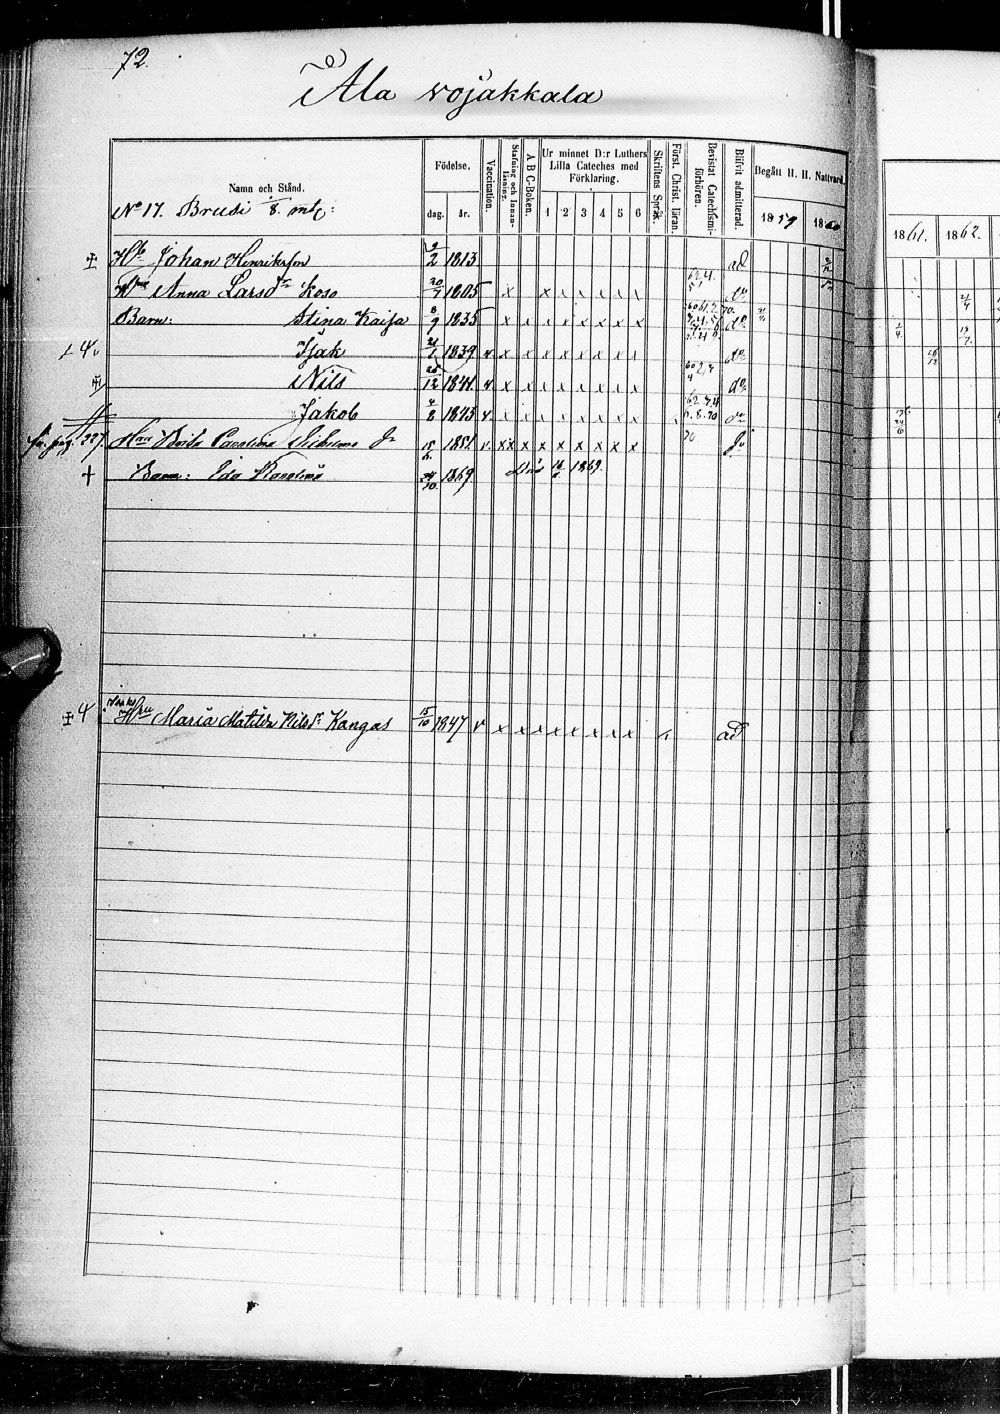 72.
Ala vojakkala
Namn och Stånd.
Födelse.
dag. år.
Vaccination.
Stafning och Innanläsning.
A B C-Boken.
Ur minnet D:r Luthers Lilla Cateches med Förklaring.
1 2 3 4 5 6
Skriftens Språk.
Först. Christ. läran.
Bevistat Catechismiförhören.
Blifvit admitterad.
Begått H. H. Nattvard.
1859 1860
1861. 1862.
No 17. Brusi 8. mtl:
Johan Henriksson 9/2 1813 ad
Anna Larsdr Koso 20/7 1805 x x x x x x x do
Barn: Stina Kaisa 8/9 1835 x x x x x x x x do
Isak 21/1 1839 v x x x x x x x x do
Nils 25/12 1841 v x x x x x x x x do
Jakob 4/8 1845 v x x x x x x x x do
pag. 227. Hru Carolina dr 1851 v x x x x x x x x do
† Barn: Ida Karolina 24/10 1869 1869.
Hru Maria Matilda Nilsdr Kangas 15/10 1847 v x x x x x x x x ad